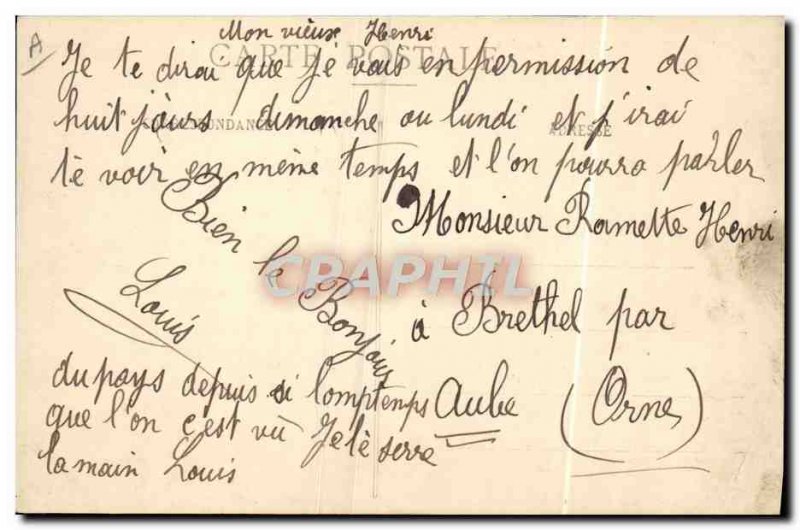 A
Mon vieux Henri
CARTE POSTALE
Je te dirai que je vais en permission de
huit jours dimanche ou lundi et j'irai
CORRESPONDANCE
ADRESSE
te voir en même temps et l'on pourra parler
Monsieur Ramette Henri
à Brethel par
Aube (Orne)
Bien le Bonjour
Louis
du pays depuis si lomptemps
que l'on c'est vu Je te serre
la main Louis
CPAPHIL